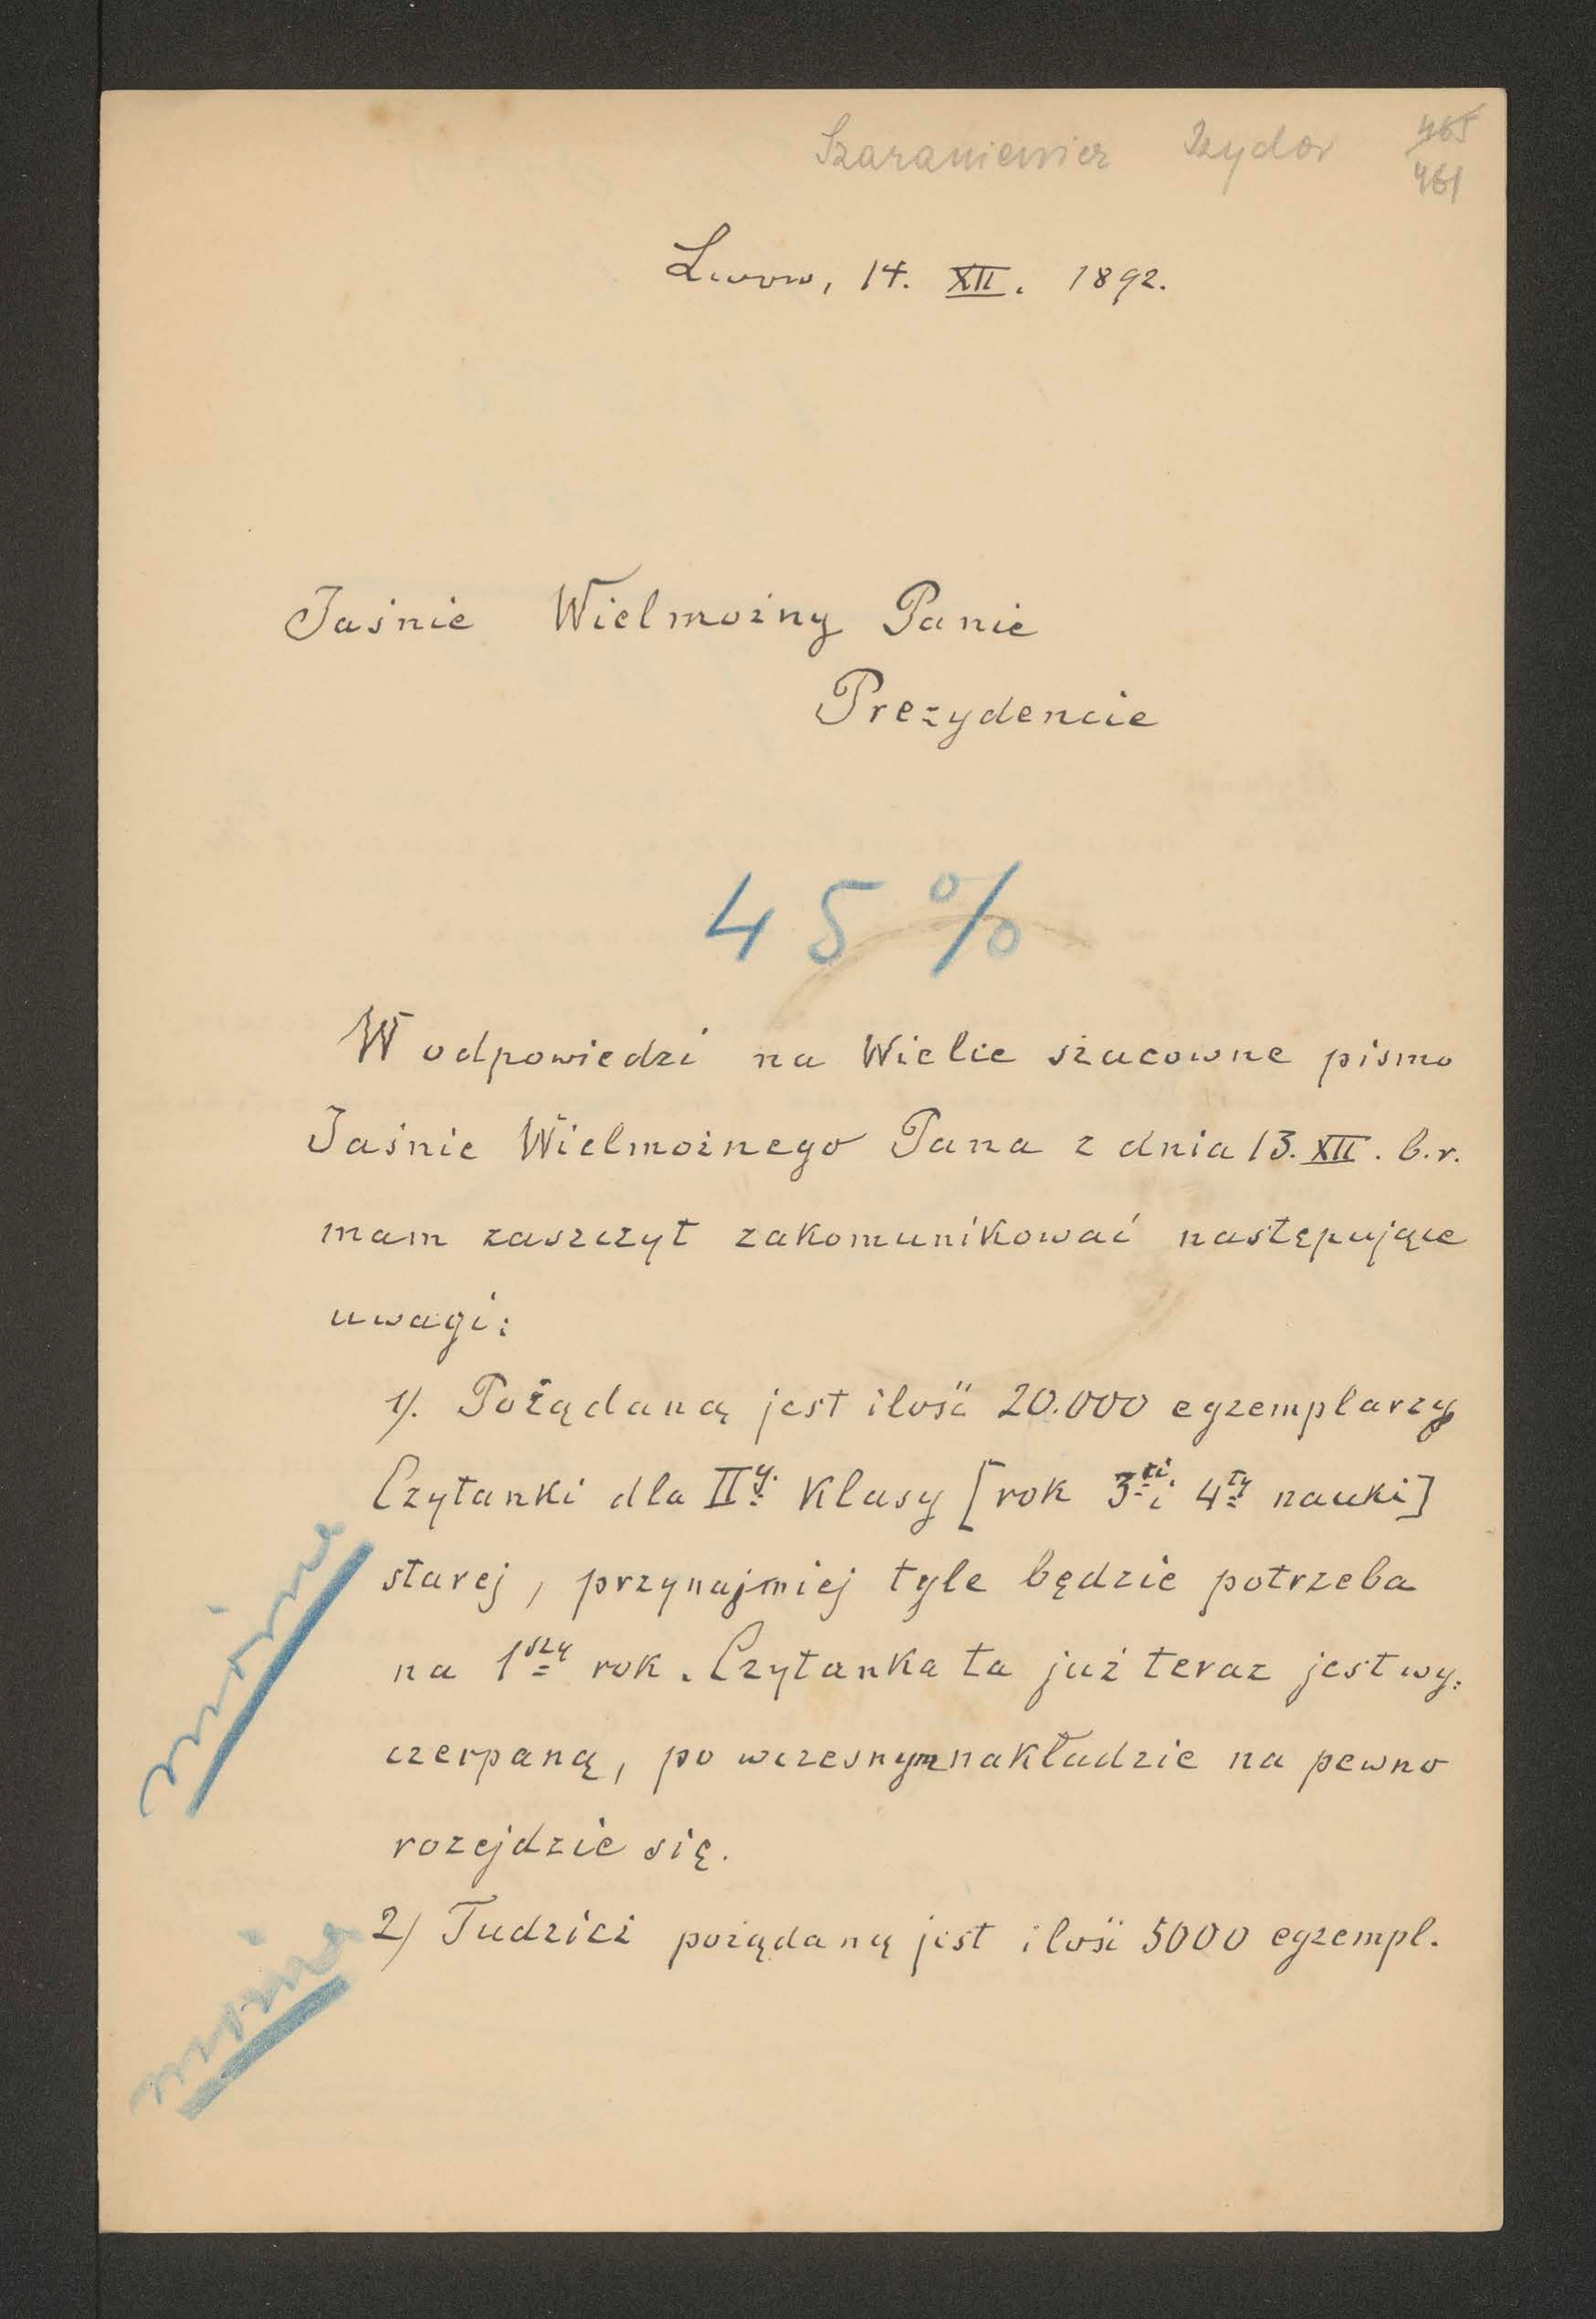 Szaraniewicz Izydor 465
461
Lwow, 14. XII. 1892.
Jaśnie Wielmożny Panie
Prezydencie
45%
W odpowiedzi na Wielce szacowne pismo
Jaśnie Wielmożnego Pana z dnia 13. XII. b.r.
mam zaszczyt zakomunikować następujące
uwagi:
1). Pożądaną jest ilość 20.000 egzemplarzy
Czytanki dla IIy. Klasy [rok 3ci i 4ty nauki]
starej, przynajmniej tyle będzie potrzeba
na 1szy rok. Czytanka ta już teraz jest wy:
czerpaną, po wczesnym nakładzie na pewno
rozejdzie się.
2) Tudzież pożądaną jest ilość 5000 egzempl.